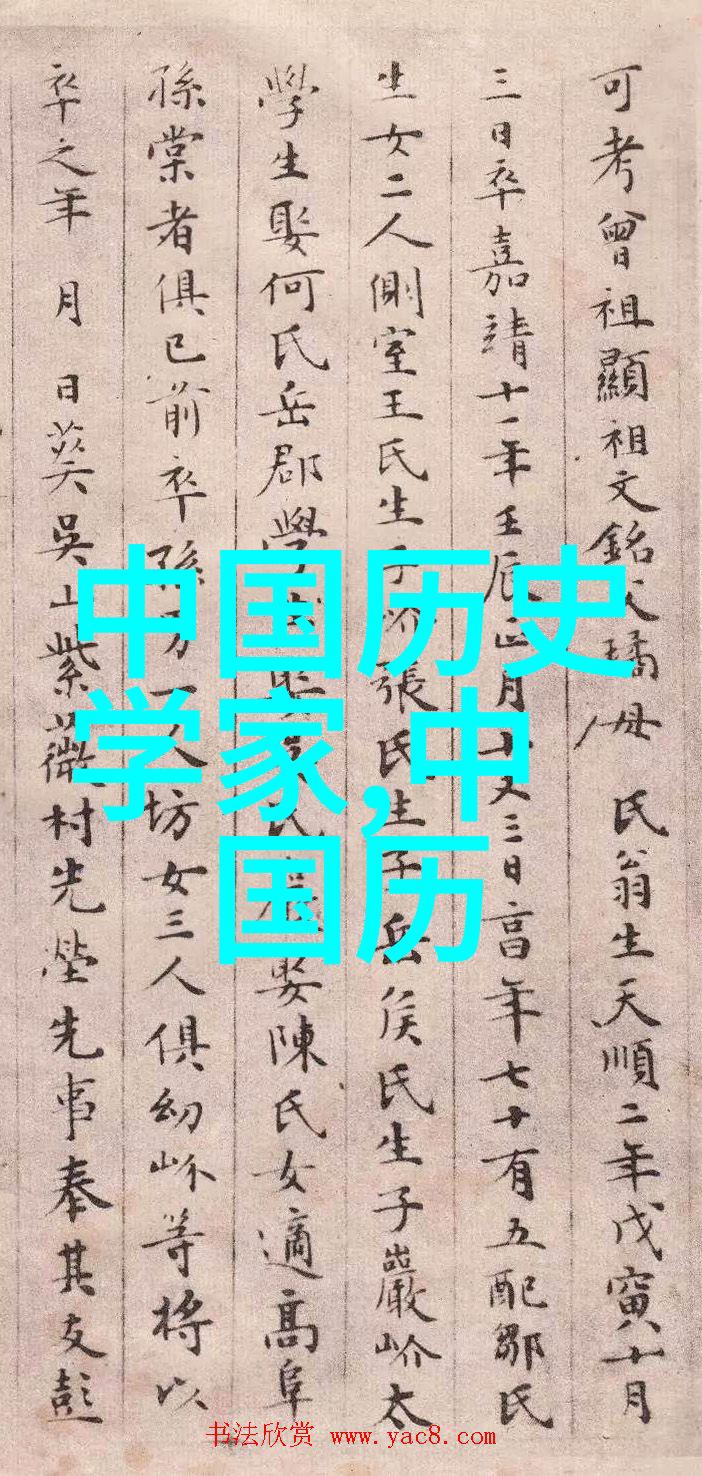 可考曾祖顯祖文銘父璚母 氏翁生天順二年戊寅十月
三日卒嘉靖十一年壬辰正月十又三日亯年七十有五配鄒氏
生女二人側室王氏生子岕張氏生子岳侯氏生子巖岕太
學生娶何氏岳郡學 娶陳氏女適高阜
孫棠者俱已前卒孫男一人坊女三人俱幼岕等将以
卒之年 月 日葬吳山紫薇村先塋先事奉其友彭
中国历史
学家,中
国历
书法欣赏 www.yac8.com